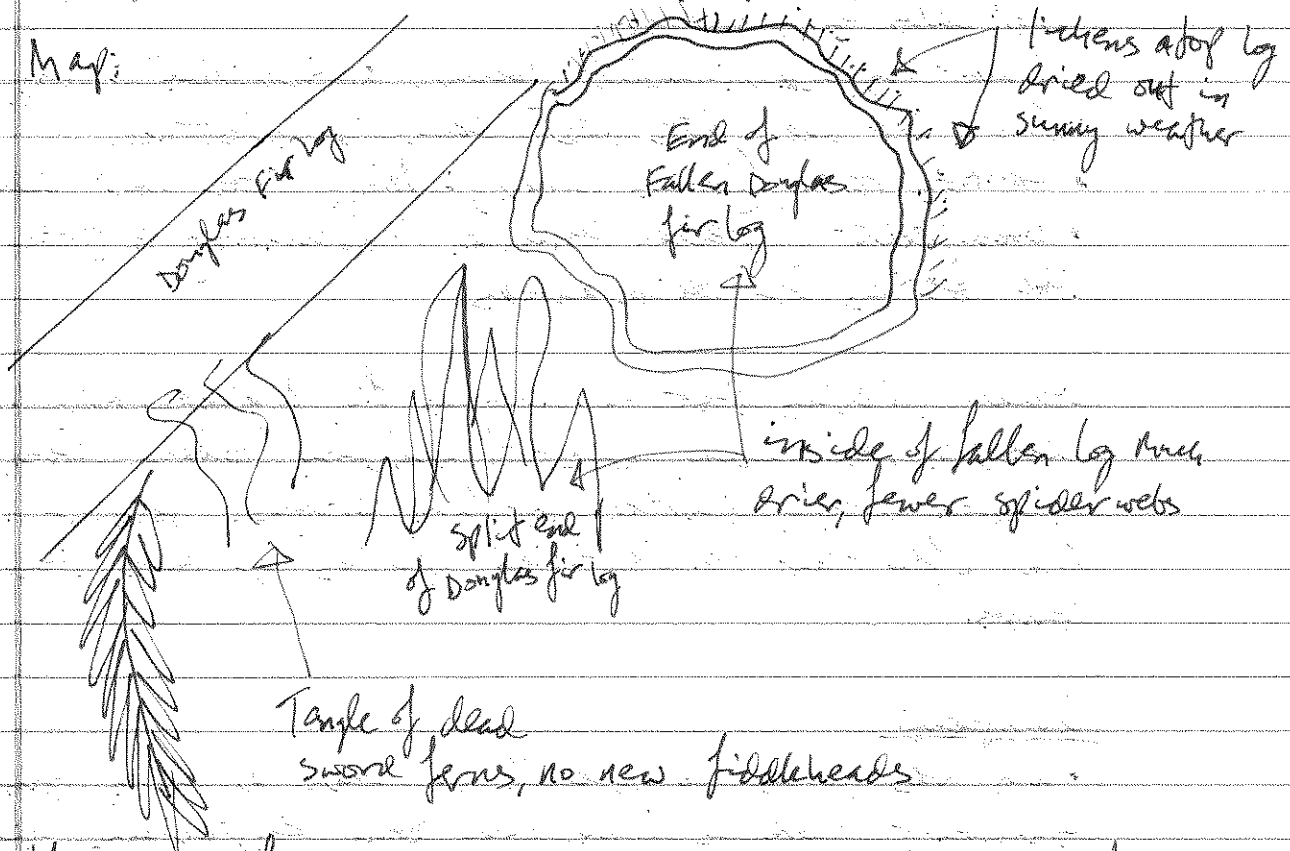 Map:
lichens atop log
dried out in
sunny weather
Douglas Fir Log
End of
Fallen Douglas
fir log
inside of fallen log much
drier, fewer spider webs
split end
of Douglas fir log
Tangle of dead
sword ferns, no new fiddleheads